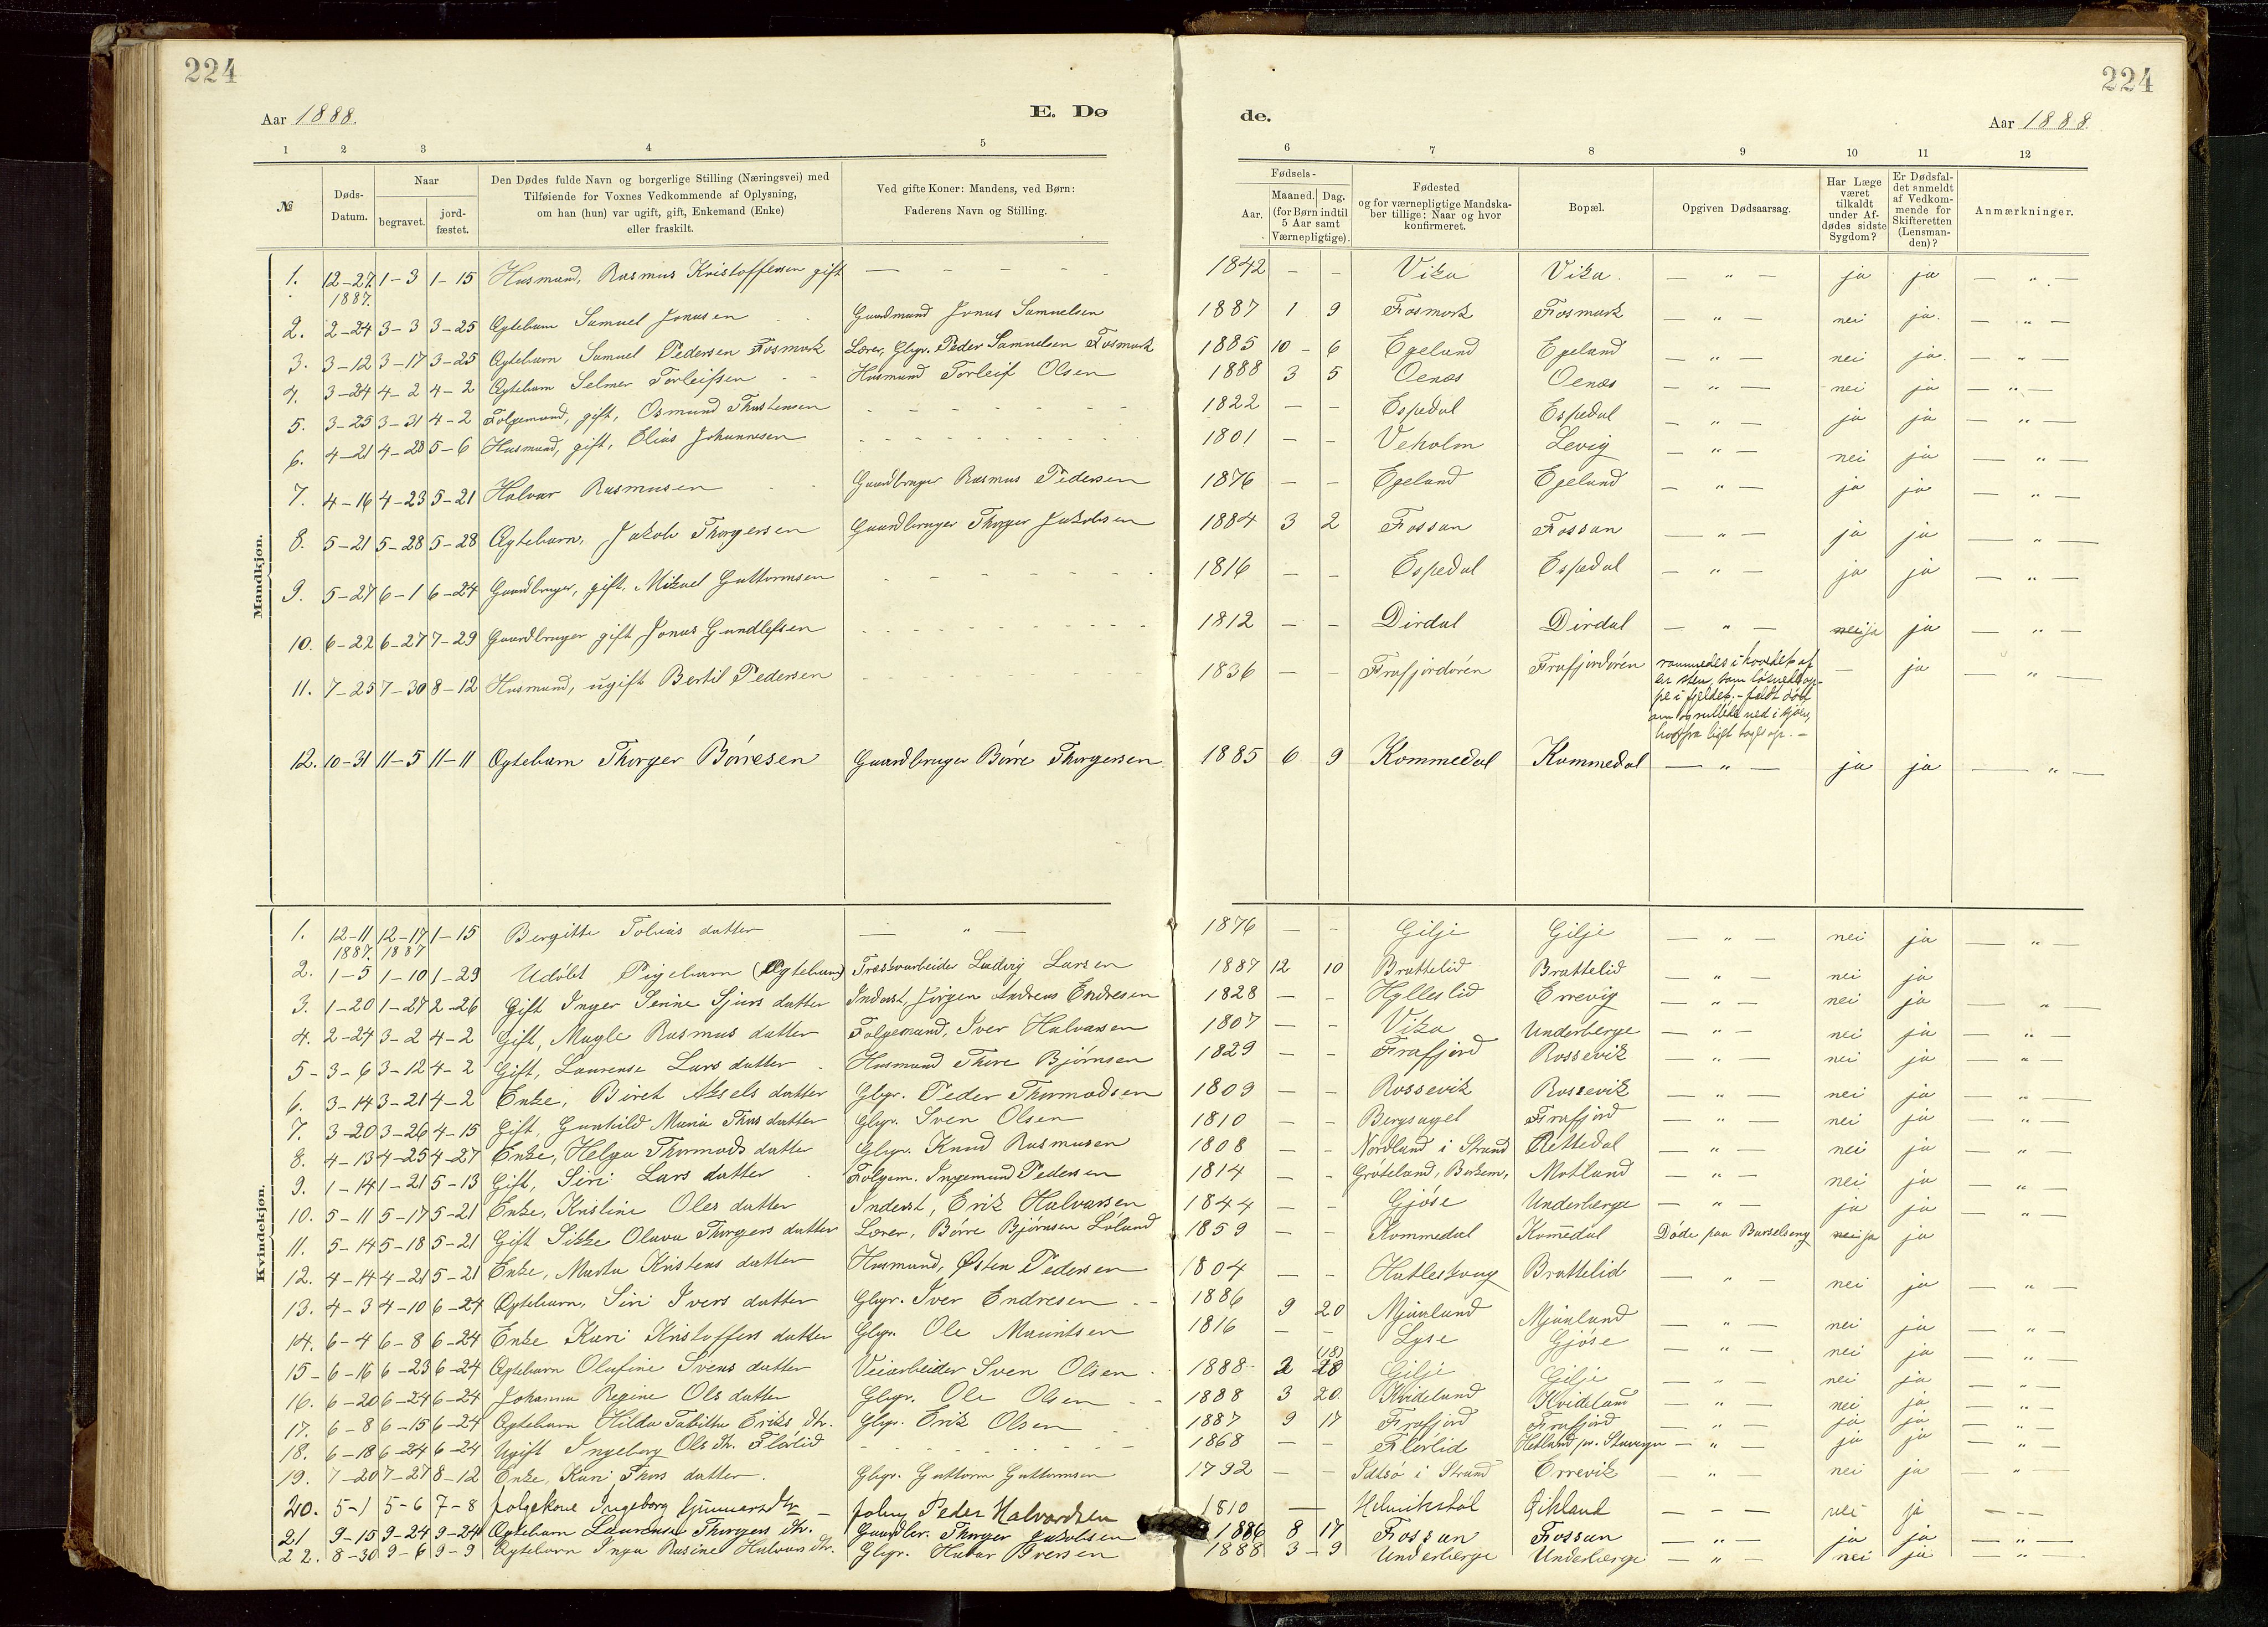 224
224
Aar 1888.
E. Dø
de.
Aar 1888
1 2 3 4 5 6 7 8 9 10 11 12
№
Døds-
Datum.
Naar
begravet.
jord-
fæstet.
Den Dødes fulde Navn og borgerlige Stilling (Næringsvei) med
Tilføiende for Voxnes Vedkommende af Oplysning,
om han (hun) var ugift, gift, Enkemand (Enke)
eller fraskilt.
Ved gifte Koner: Mandens, ved Børn:
Faderens Navn og Stilling.
Fødsels-
Aar.
Maaned. Dag.
(for Børn indtil
5 Aar samt
Værnepligtige).
Fødested
og for værnepligtige Mandska-
ber tillige: Naar og hvor
konfirmeret.
Bopæl.
Opgiven Dødsaarsag.
Har Læge
været
tilkaldt
under Af-
dødes sidste
Sygdom?
Er Dødsfal-
det anmeldt
af Vedkom-
mende for
Skifteretten
(Lensman-
den)?
Anmærkninger.
Mandkjøn.
1. 12-27. 1887. 1-3 1-15 Husmand, Rasmus Kristoffersen gift — 1842 — — Vika Vika. — " — ja ja — " —
2. 2-24 3-3 3-25 Ægtebarn Samuel Jonasen Gaardmand Jonas Samuelsen 1887 1 9 Fosmork Fosmark — " — nei ja. — " —
3. 3-12 3-17 3-25 Ægtebarn Samuel Pedersen Fosmark Lærer, Gbgr. Peder Samuelsen Fosmark 1885 10 - 6 Egeland Egeland — " — nei ja. — " —
4. 3-24 4-2 4-2 Ægtebarn Selmer Torleifsen Husmand Torleif Olsen 1888 3 5 Oenæs Oenæs — " — nei ja — " —
5. 3-25 3-31 4-2 Folgemand, gift, Osmund Thustensen 1822 — — Espedal Espedal — " — ja ja — " —
6. 4-21 4-28 5-6 Husmand, gift, Elias Johannesen 1801 — — Veholm Levig — " — nei ja — " —
7. 4-16 4-23 5-21 Halvar Rasmusen Gaardbruger Rasmus Pedersen 1876 — — Egeland Egeland — " — ja ja — " —
8. 5-21 5-28 5-28 Ægtebarn, Jakob Thorgersen Gaardbruger Thorger Jakobsen 1884 3 2 Fossan Fossan — " — ja ja — " —
9. 5-27 6-1 6-24 Gaardbruger, gift. Mikael Guttormsen 1816 — — Espedal Espedal — " — ja ja — " —
10. 6-22 6-27 7-29 Gaardbruger gift Jonas Gundlefsen 1812 — — Dirdal Dirdal — " — nei ja ja — " —
11. 7-25 7-30 8-12 Husmand, ugift Bertil Pedersen 1836 — — Frafjordøren Frafjordøren rammedes i hovedet af
en sten, som løsnede op-
pe i fjeldet; - faldt død
om og rullede ned i sjøen,
hvorfra liget toges op. — — ja — " —
12. 10-31 11-5 11-11 Ægtebarn Thorger Børresen Gaardbruger Børre Thorgersen 1885 6 9 Kommedal Kommedal — " — ja ja — " —
Kvindekjøn.
1. 12-11 1887. 12-17 1887 1-15 Bergitte Tobias datter — " — 1876 — — Gilje Gilje — " — nei ja — " —
2. 1-5 1-10 1-29 Udøbt Pigebarn (Ægtebarn) Træskoarbeider Ludvig Larsen 1887 12 10 Brattelid Brattelid — " — nei ja
3. 1-20 1-27 2-26 Gift Inger Serine Sjurs datter Inderst, Jørgen Andreas Endresen 1828 — — Hylleslid Errevig — " — nei ja "
4. 2-24 3-2 4-2 Gift, Magle Rasmus datter Folgemand, Iver Halvarsen 1807 — — Vika Underberge — " — nei ja — " —
5 - 3-6 3-12 4-2 Gift, Laurense Lars datter Husmand Thore Bjørnsen 1829 — — Frafjord Rossevik " — nei ja — " —
6. 3-14 3-21 4-2 Enke, Biret Aksels datter Gbgr. Peder Thormodsen 1809 — — Rossevik Rossevik — " — nei ja — " —
7. 3-20 3-26 4-15 Gift, Gunhild Maria Thors datter Gbgr. Sven Olsen 1810 — — Bergsagel Frafjord — " — nei ja — " —
8. 4-13 4-25 4-27 Enke, Helga Thormods datter Gbgr. Knud Rasmusen 1808 — — Nordland i Strand Rettedal — " — nei ja — " —
9. 1-14 1-21 5-13 Gift, Siri Lars datter Folgem. Ingemund Pedersen 1814 — — Grøteland, Motland — " — nei ja — " —
10. 5-11 5-17 5-21 Enke, Kristine Oles datter Inderst, Erik Halvarsen 1844 — — Gjøse Underberge — " — ja ja — " —
11. 5-14 5-18 5-21 Gift Sikke Olava Thorgers datter Lærer, Børre Bjørnsen Løland 1859 — — Kommedal Komedal Døde paa Barselseng nei ja ja
12. 4-14 4-21 5-21 Enke, Marta Kristens datter Husmand, Østen Pedersen 1804 — — Hatleskaug Brattelid — " — nei ja — " —
13. 4-3 4-10 6-24 Ægtebarn, Siri Ivers datter Gbgr. Iver Endresen 1886 9 20 Mjaaland Mjaaland — " — nei ja — " —
14. 6-4 6-8 6-24 Enke Kari Kristoffers datter Gbgr. Ole Mauritsen 1816 — — Lyse Gjøse — " — nei ja — " —
15 - 6-16 6-23 6-24 Ægtebarn Olufine Svens datter Veiarbeider Sven Olsen 1888 2 28 (18) Gilje Gilje — " — nei ja — " —
16. 6-20 6-24 6-24 Johanna Regine Ols datter Gbgr. Ole Olsen 1888 3 20. Kvideland Kvideland — " — nei ja — " —
17. 6-8 6-15 6-24 Ægtebarn Hilda Tabitha Eriks dtr. Gbgr. Erik Olsen 1887 9 17 Frafjord Frafjord — " — ja ja — " —
18. 6-18 6-24 6-24 Ugift Ingeborg Ols dtr. Flørlid 1868 — — Flørlid Hetland pr. Stavanger — " — ja ja — " —
19. 7-20 7-27 8-12 Enke, Kari Thors datter. Gbgr. Guttorm Guttormsen 1792 — — Idsø i Strand Errevik — " nei ja — " —
20. 5-1 5-6 7-8 folgekone Ingeborg Gunnarsdtr — folgm Peder Halvardsen 1810 — Helmikstøl Øikland — — nei ja — - —
21 9-15 9-24 9-24 Ægtebarn Laurense Thorgers dtr. Gaardbr. Thorger Jakobsen 1886 8 17 Fossan Fossan — " — ja ja — " —
22. 8-30 9-6 9-9 Ægtebarn Inga Rasine Halvars dtr. Gbgr. Halvar Iversen 1888 3 - 9 Underberge Underberge — " — nei ja — " —